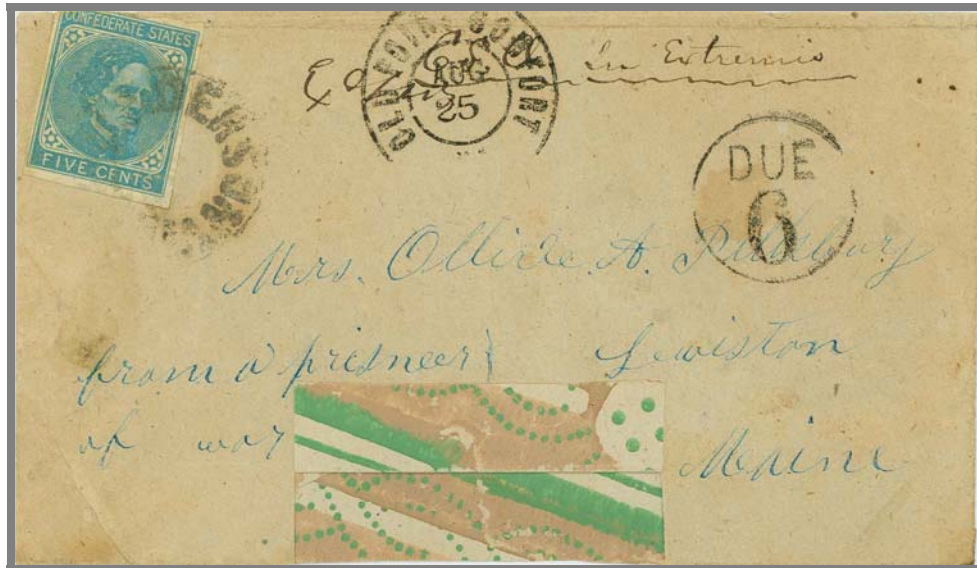 CONFEDERATE STATES
FIVE CENTS
OLD POINT COMFORT
AUG
25
Ex In Extremis
DUE
6
Mrs. Ollivde. A. Pillsbury
from a presneer
of war
Lewiston
Maine